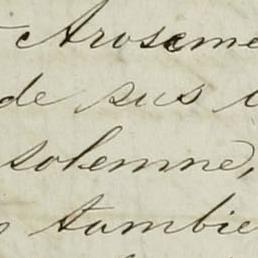 Aroseme
de sus
solemne,
tambie